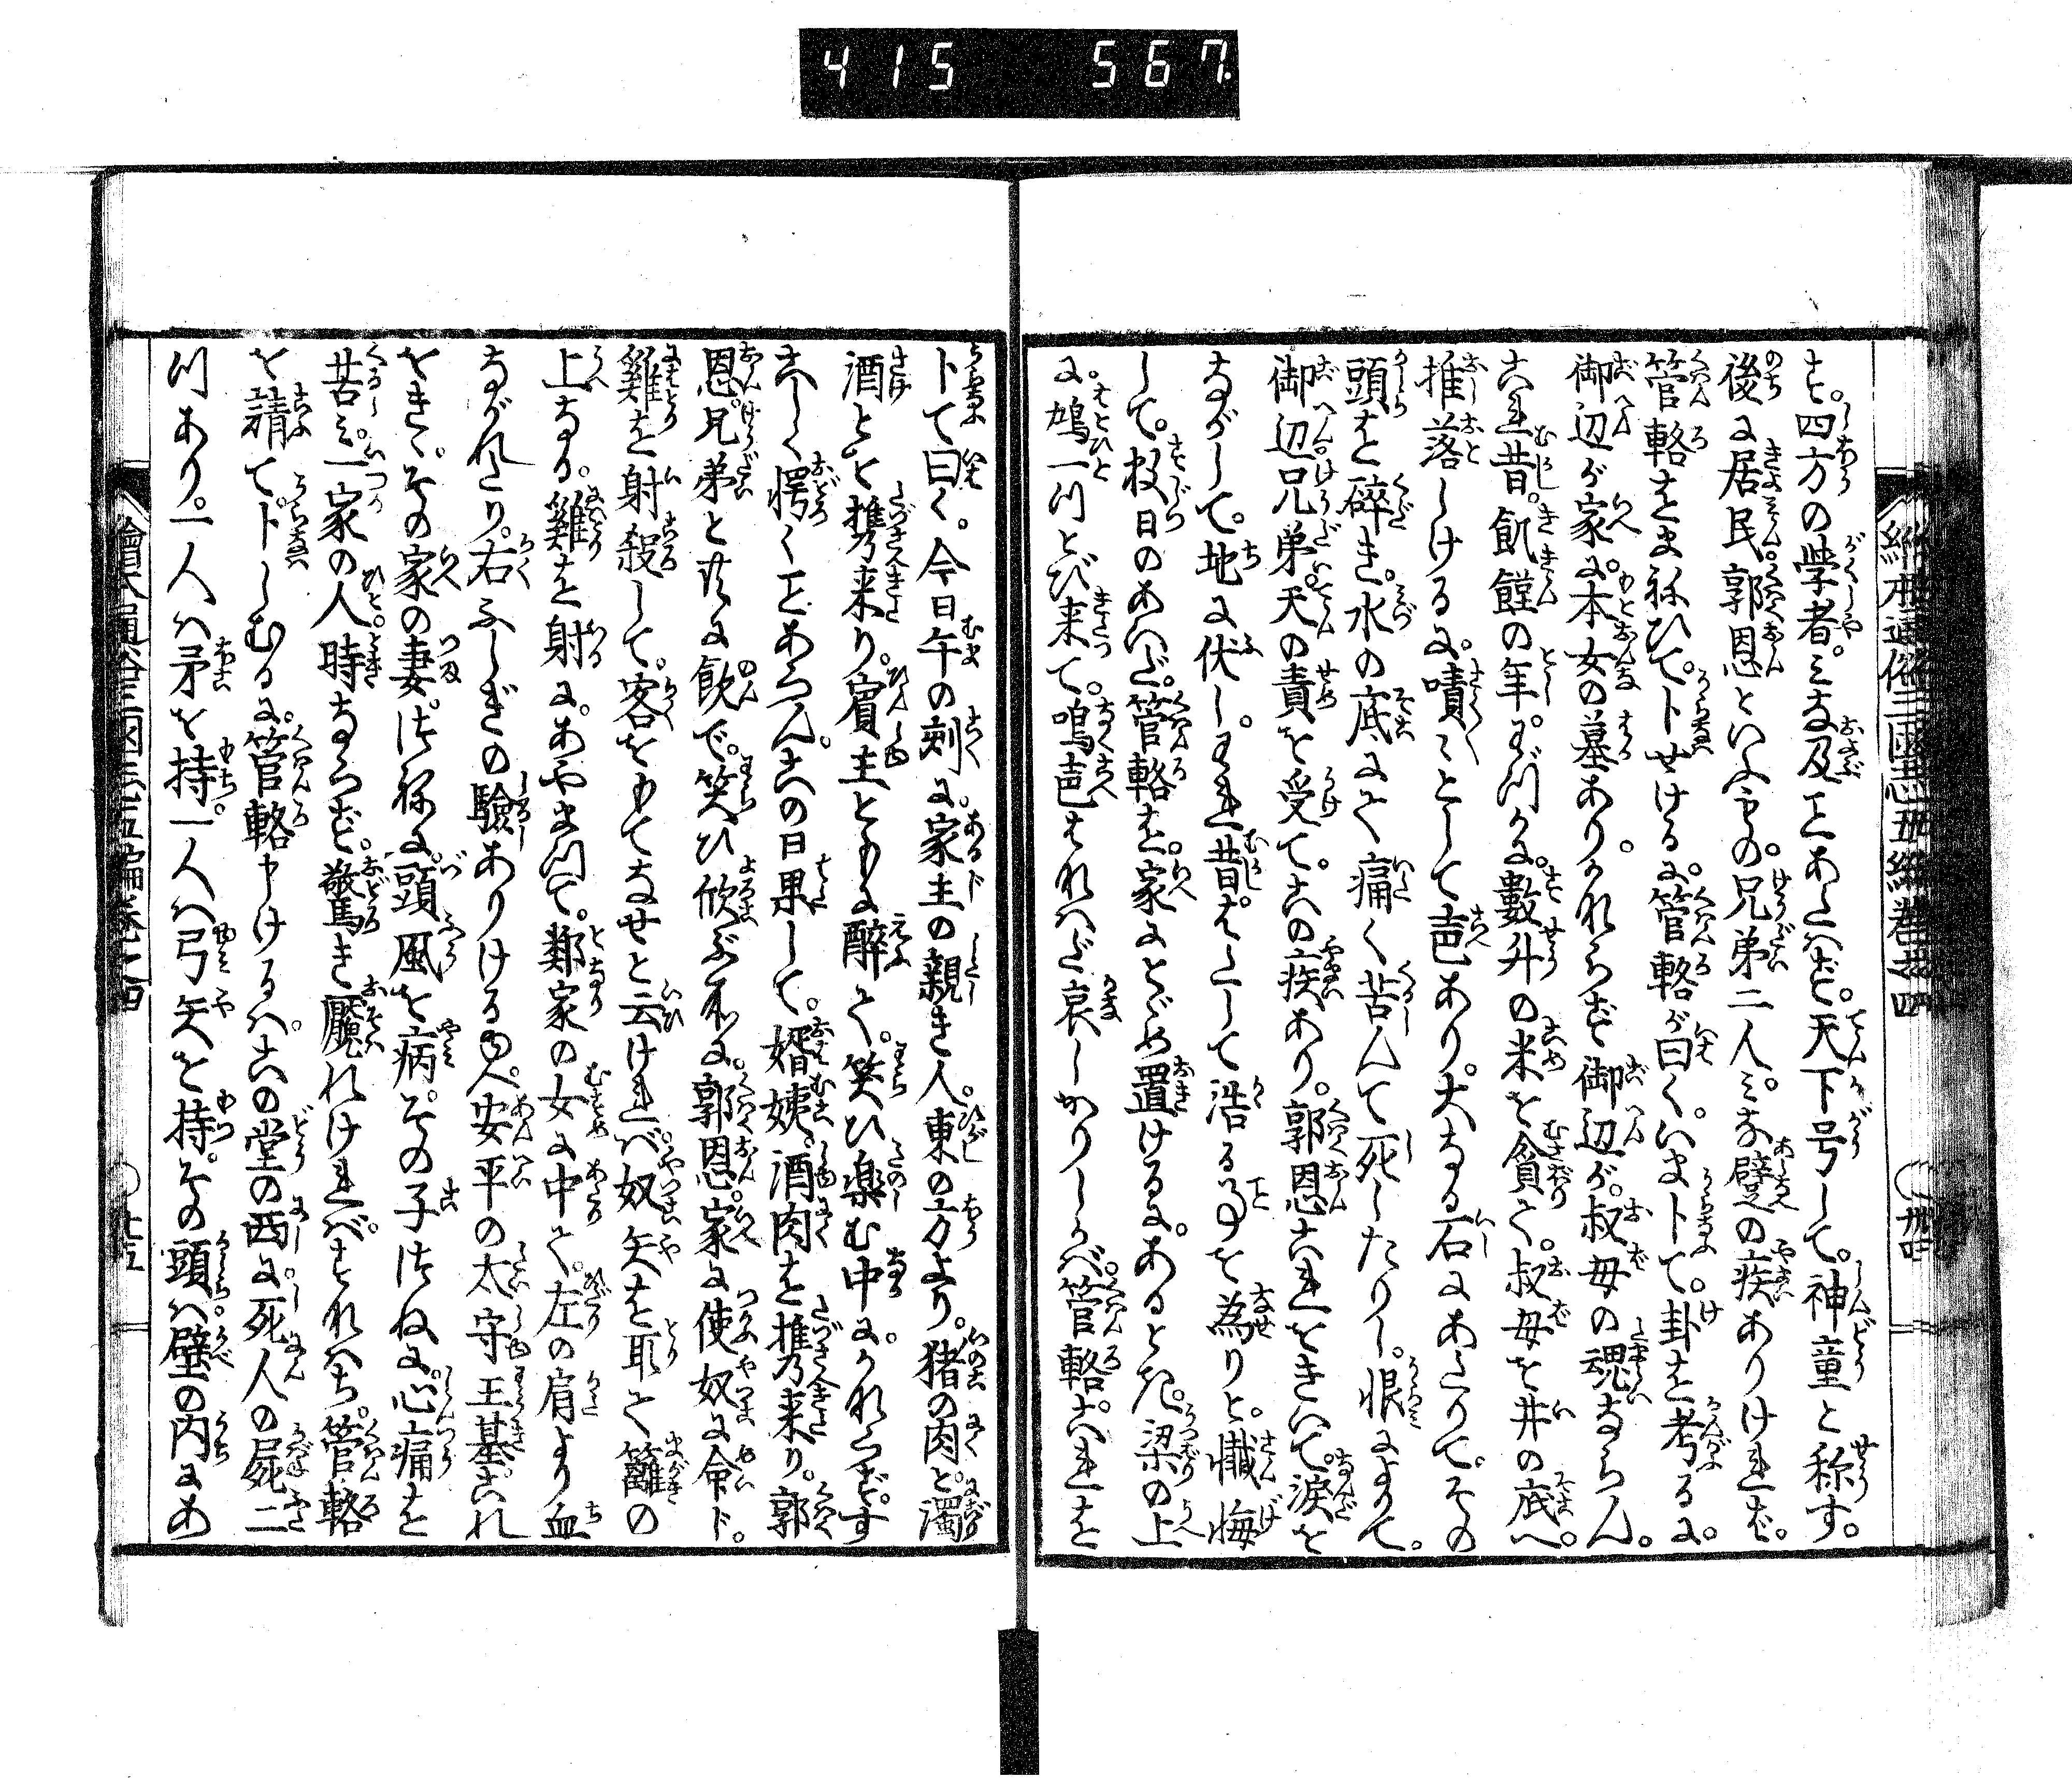 415 567.
絵本通俗三國志五編巻之四
す。四方の學者。みな及ことあたはず。天下号して。神童と称す。
後に居民。郭恩といふ者の。兄弟三人。みな躄の疾ありければ。
管輅をまねひて。卜せけるに。管輅が曰く。いま卜て。卦を考るに。
御辺が家に。本女の墓あり。かれらず御辺が。叔母の魂ならん。
これ昔。飢饉の年。わづかに。數升の米を貪て。叔母を井の底へ。
推落しけるに。嘖々として声あり。大なる石にあたりて。その
頭を砕き。水の底にて痛く苦んで死したりし。恨によりて。
御辺兄弟。天の責を受て。この疾あり。郭恩これをきいて。涙を
ながして。地に伏し。われ昔。はたして浩る事を為りと。懺悔
して。数日のあいだ。管輅を。家にとゞめ置けるに。あるとき。梁の上
に。鳩一つとび来て。鳴声はなはだ哀しかりしかば。管輅。これを
卜て曰く。今日午の刻に。家主の親き人。東の方より。猪の肉と。濁
酒とを携来り。賓主ともに酔て。笑ひ楽む中に。かならず。す
こしく愕くことあらん。この日果して。婿姨。酒肉を携来り。郭
恩。兄弟と共に飲で。笑ひ欣ぶ所に。郭恩。家に使奴に命ド。
鷄を射殺して。客をもてなせと云ければ。奴矢を取て籬の
上なる。鷄を射に。あやまつて。鄰家の女に中て。左の肩より血
ながれたり。右ふしぎの驗ありけるゆへ安平の太守王基これ
をきく。その家の妻。つねに。頭風を病。その子つねに。心痛を
苦み。一家の人。時ならず。驚き魘れければ。すなはち。管輅
を請て。卜しむるに。管輅申けるは。この堂の西に。死人の屍二
つあり。一人は矛を持。一人は弓矢を持。その頭は。壁の内にあ
繪本通俗三國志五編巻之四